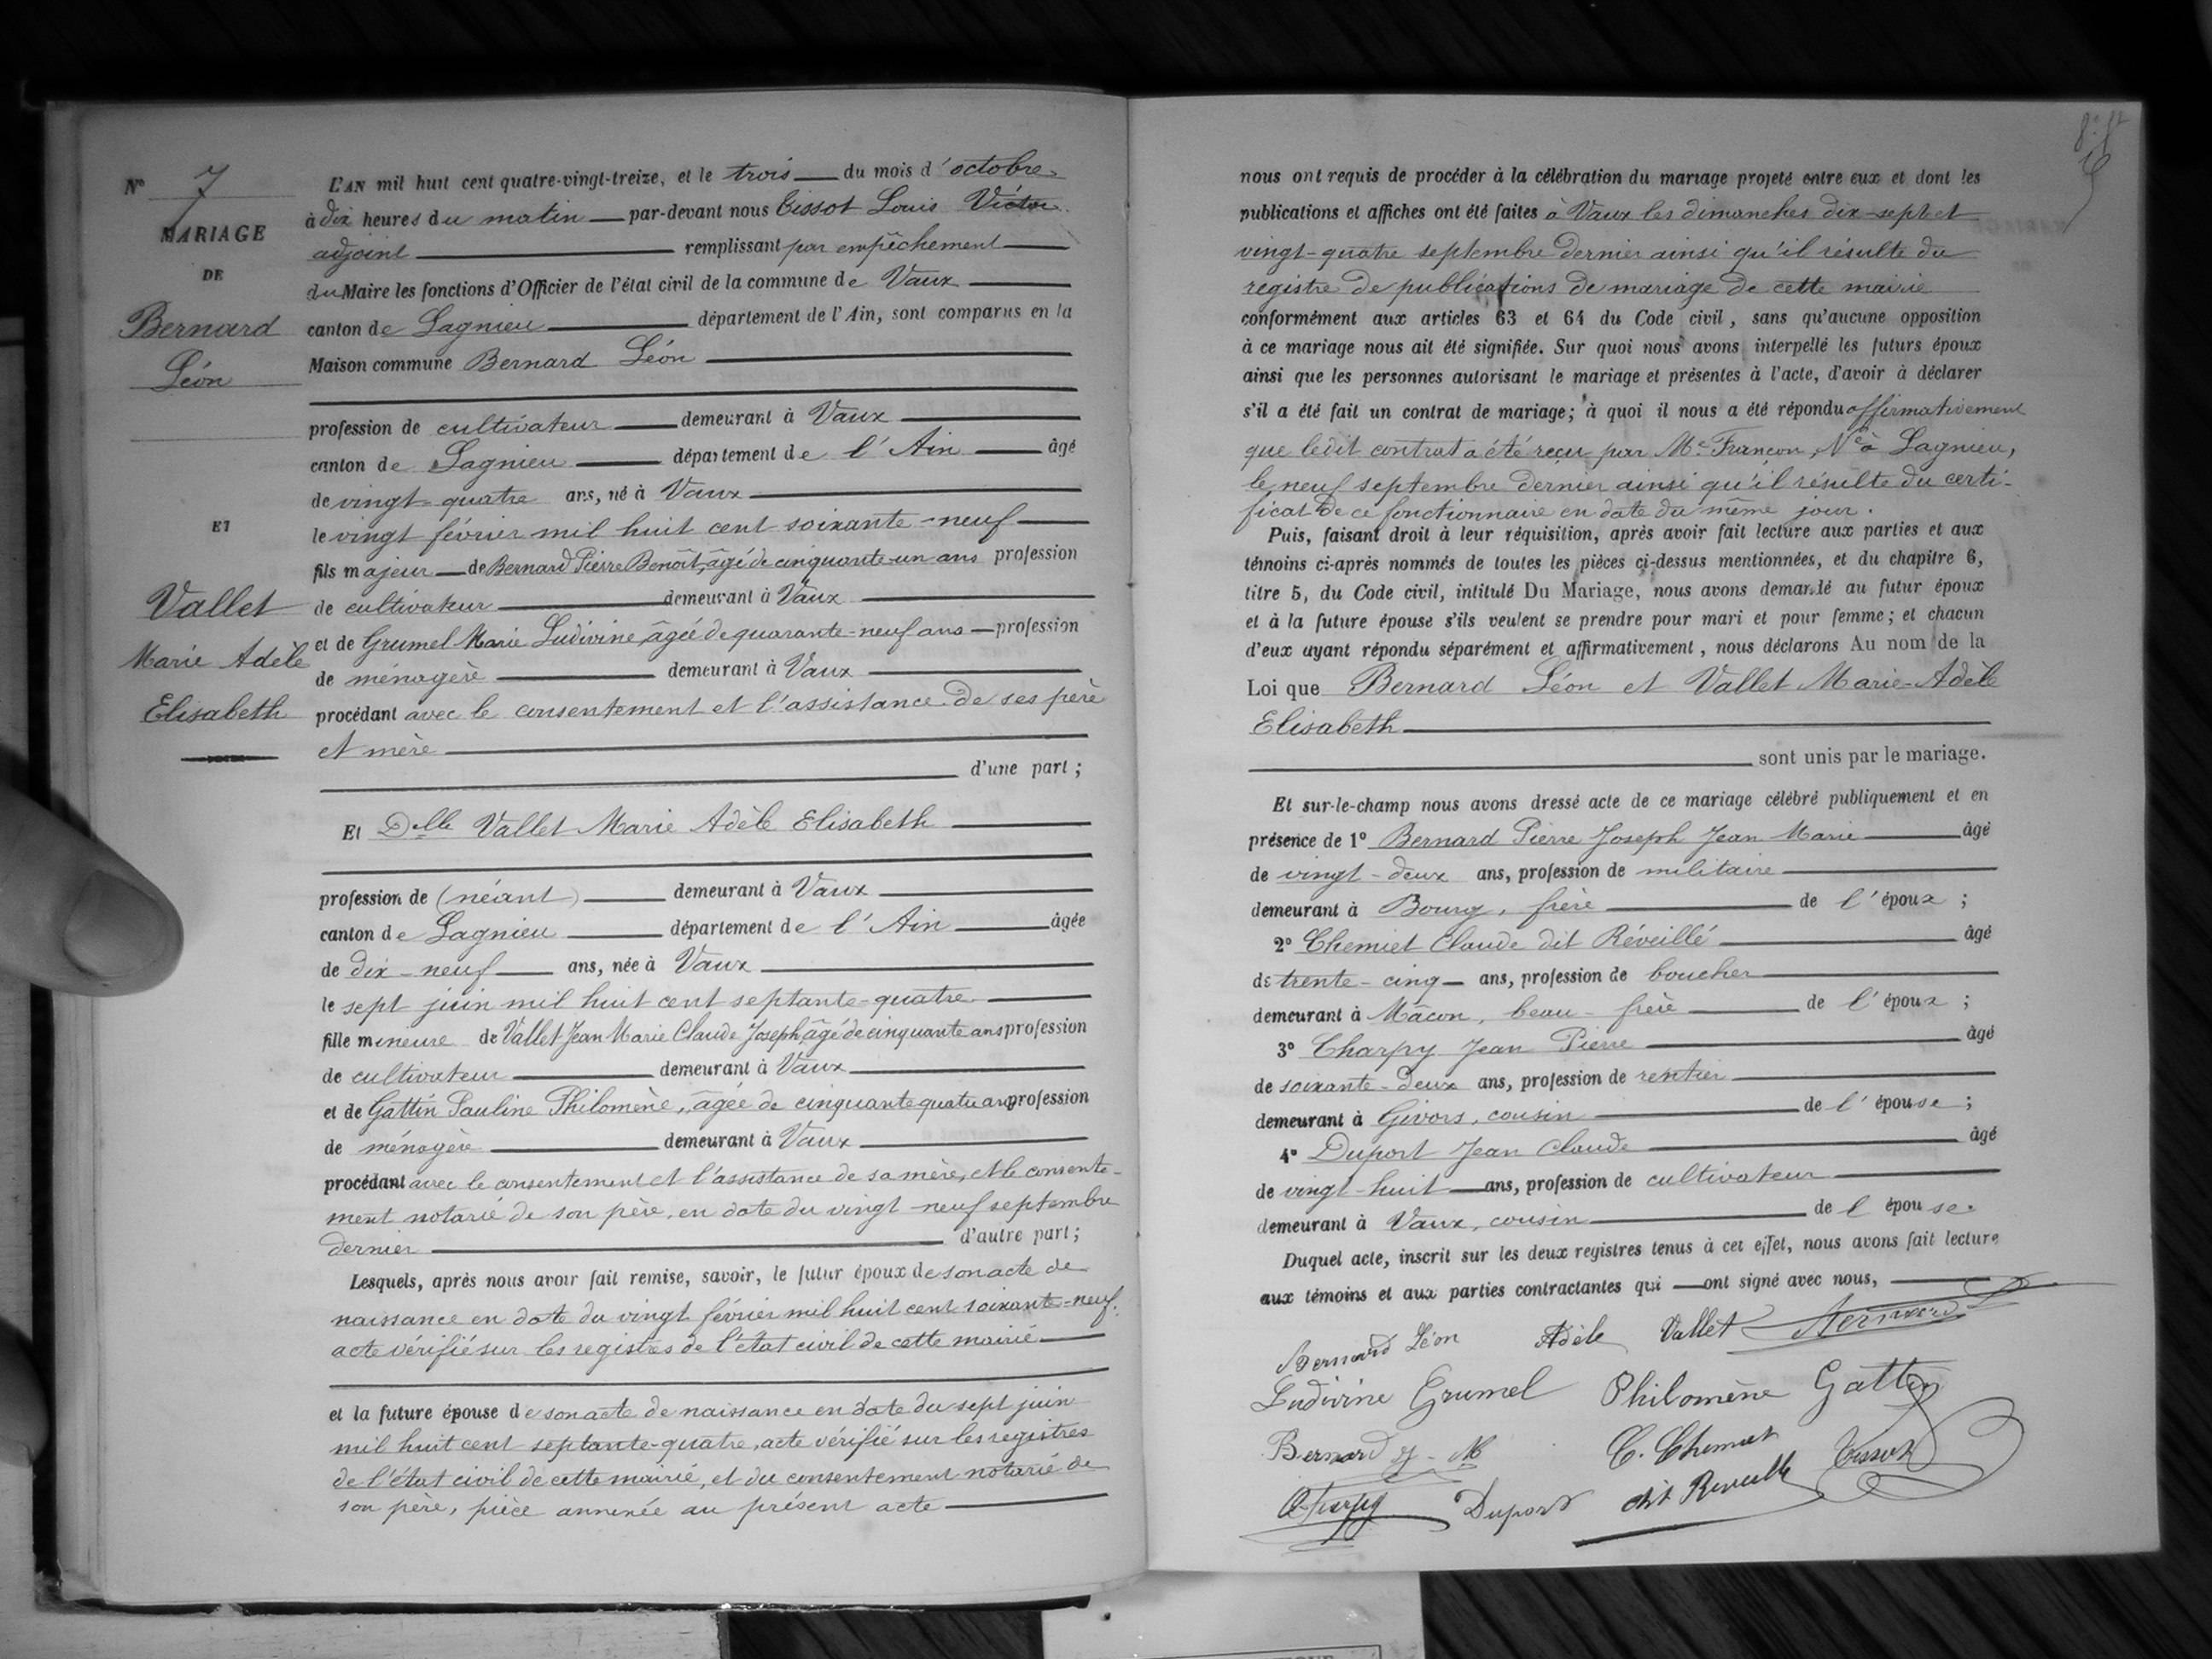 N° 7
MARIAGE
DE
Bernard
Léon
ET
Vallet
Marie Adèle
Elisabeth
L'AN mil huit cent quatre-vingt-treize, et le trois du mois d'octobre
à dix heures du matin par-devant nous Tissot Louis Victor
adjoint remplissant par empêchement
du Maire les fonctions d'Officier de l'état civil de la commune de Vaux
canton de Lagnieu département de l'Ain, sont comparus en la
Maison commune Bernard Léon
profession de cultivateur demeurant à Vaux
canton de Lagnieu département de l'Ain âgé
de vingt-quatre ans, né à Vaux
le vingt février mil huit cent soixante-neuf
fils majeur de Bernard Pierre Benoît, âgé de cinquante-un ans profession
de cultivateur demeurant à Vaux
et de Grumel Marie Ludivine, âgée de quarante-neuf ans profession
de ménagère demeurant à Vaux
procédant avec le consentement et l'assistance de ses père
et mère
d'une part;
Et Delle Vallet Marie Adèle Elisabeth
profession de (néant) demeurant à Vaux
canton de Lagnieu département de l'Ain âgée
de dix-neuf ans, née à Vaux
le sept juin mil huit cent septante-quatre
fille mineure de Vallet Jean Marie Claude Joseph âgé de cinquante ans profession
de cultivateur demeurant à Vaux
et de Gattin Pauline Philomène, âgée de cinquante quatre ans profession
de ménagère demeurant à Vaux
procédant avec le consentement et l'assistance de sa mère, et le consente-
ment notarié de son père, en date du vingt-neuf septembre
dernier d'autre part;
Lesquels, après nous avoir fait remise, savoir, le futur époux de son acte de
naissance en date du vingt février mil huit cent soixante-neuf.
acte vérifié sur les registres de l'état civil de cette mairie
et la future épouse de son acte de naissance en date du sept juin
mil huit cent septante-quatre, acte vérifié sur les registres
de l'état civil de cette mairie, et du consentement notarié de
son père, pièce annexée au présent acte
nous ont requis de procéder à la célébration du mariage projeté entre eux et dont les
publications et affiches ont été faites à Vaux les dimanches dix-sept et
vingt-quatre septembre dernier ainsi qu'il résulte du
registre de publications de mariage de cette mairie
conformément aux articles 63 et 64 du Code civil, sans qu'aucune opposition
à ce mariage nous ait été signifiée. Sur quoi nous avons interpellé les futurs époux
ainsi que les personnes autorisant le mariage et présentes à l'acte, d'avoir à déclarer
s'il a été fait un contrat de mariage; à quoi il nous a été répondu affirmativement
que ledit contrat a été reçu par Me Françon, Nre à Lagnieu,
le neuf septembre dernier ainsi qu'il résulte du certi-
ficat de ce fonctionnaire en date du même jour.
Puis, faisant droit à leur réquisition, après avoir fait lecture aux parties et aux
témoins ci-après nommés de toutes les pièces ci-dessus mentionnées, et du chapitre 6,
titre 5, du Code civil, intitulé Du Mariage, nous avons demandé au futur époux
et à la future épouse s'ils veulent se prendre pour mari et pour femme; et chacun
d'eux ayant répondu séparément et affirmativement, nous déclarons Au nom de la
Loi que Bernard Léon et Vallet Marie-Adèle
Elisabeth
sont unis par le mariage.
Et sur-le-champ nous avons dressé acte de ce mariage célébré publiquement et en
présence de 1° Bernard Pierre Joseph Jean Marie âgé
de vingt-deux ans, profession de militaire
demeurant à Bourg, frère de l'époux;
2° Chemiet Claude dit Réveillé âgé
de trente-cinq ans, profession de boucher
demeurant à Mâcon, beau-frère de l'époux;
3° Charpy Jean Pierre âgé
de soixante-deux ans, profession de rentier
demeurant à Givors, cousin de l'épouse;
4° Duport Jean Claude âgé
de vingt-huit ans, profession de cultivateur
demeurant à Vaux, cousin de l'épouse.
Duquel acte, inscrit sur les deux registres tenus à cet effet, nous avons fait lecture
aux témoins et aux parties contractantes qui ont signé avec nous,
Bernard Léon Adèle Vallet Bernard
Ludivine Grumel Philomène Gattin
Bernard J-M C. Chemiet Tissot
Charpy Duport dit Reveillé